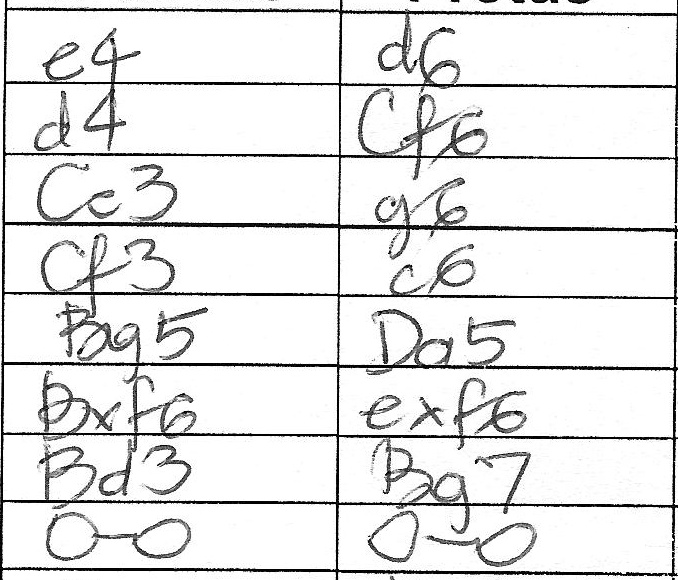 e4 d6
d4 Cf6
Cc3 g6
Cf3 c6
Bg5 Da5
Bxf6 exf6
Bd3 Bg7
O-O O-O